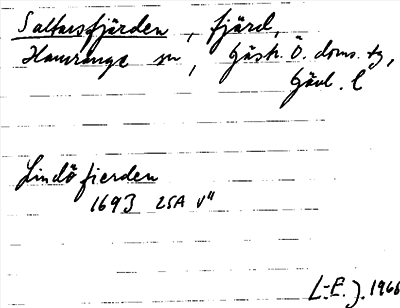 Saltarsfjärden, fjärd,
Hamrånge sn, Gästr. Ö. doms. tg,
Gävl. l
Lindö fierden
1693 LSA V"
L-E. J. 1966